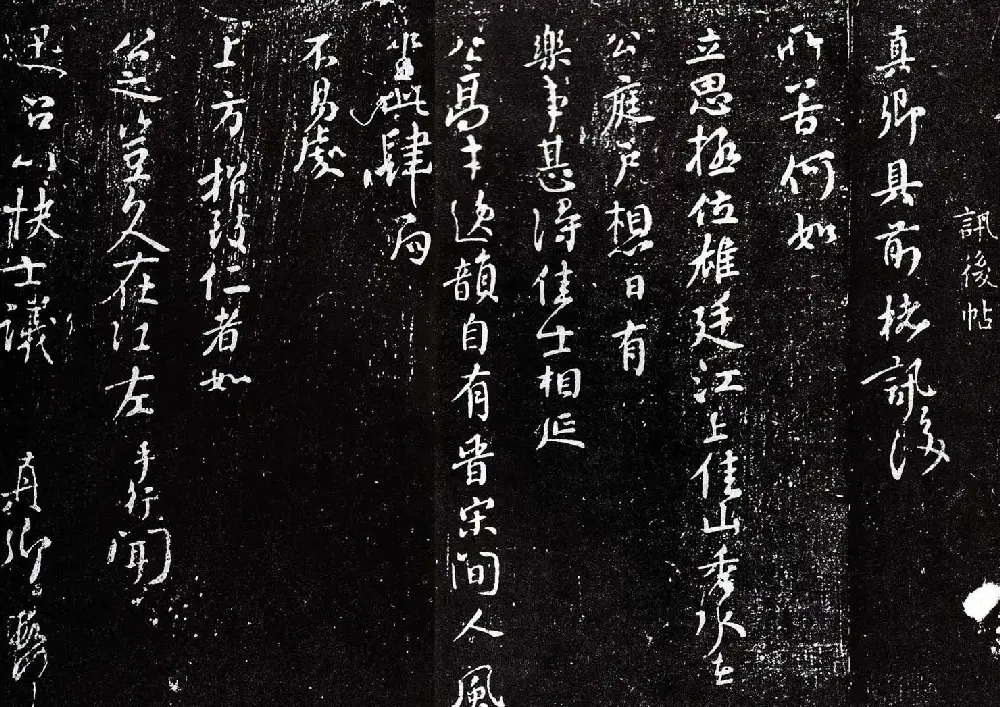 訊後帖
真卿具前楮訊後
所苦何如
立思極位雄廷江上佳山秀水在
公庭戶想日有
樂事甚得佳士相延
公高才逸韻自有晉宋間人風
肆為
不易處
上方招致仁者如
公豈久在江左 手行聞
迅召以快士議 真卿